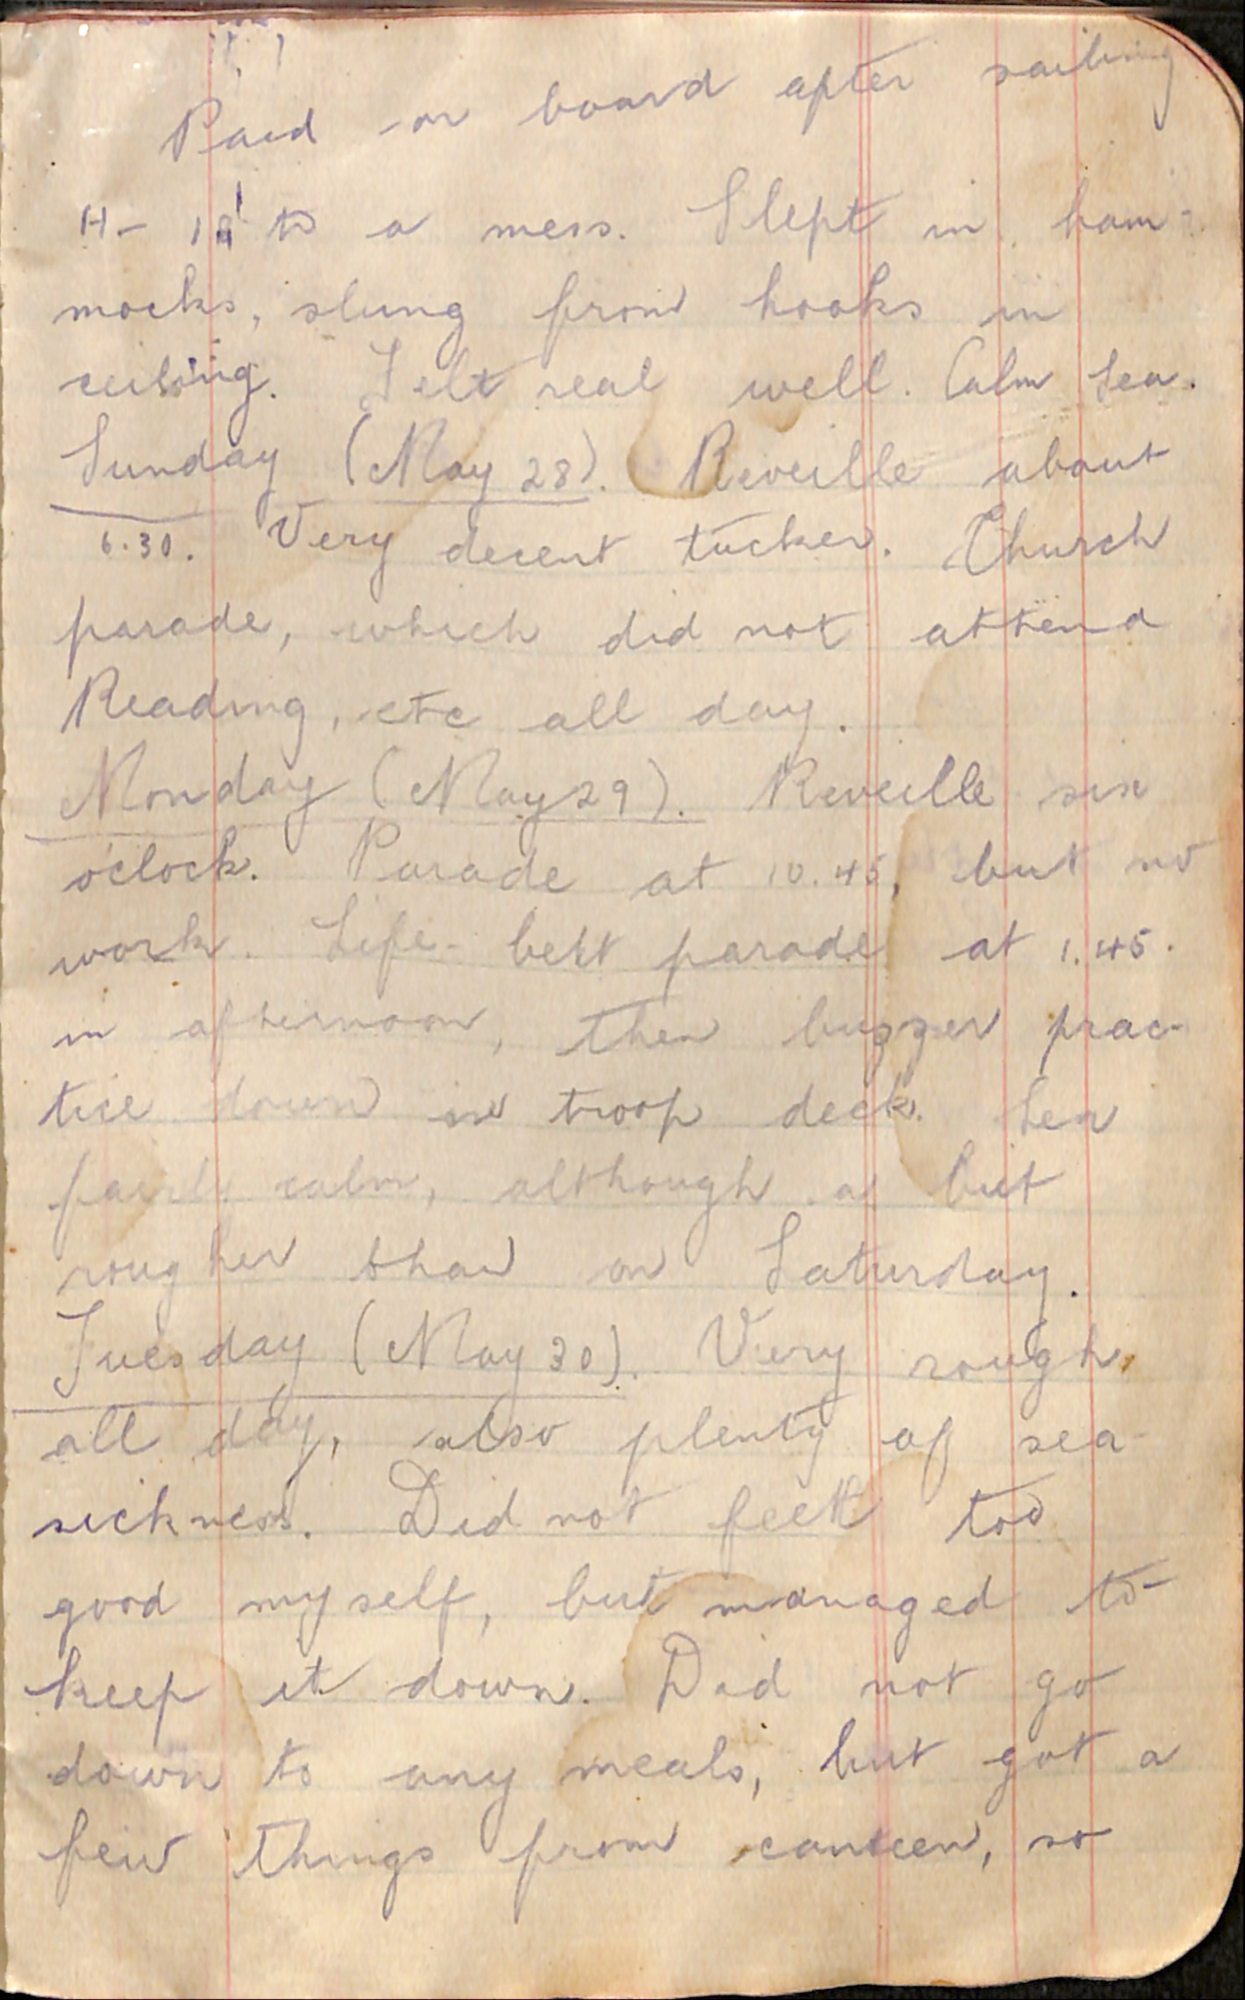 Paid on board after sailing
H- 18 to a mess. Slept in ham-
mocks, slung from hooks in
ceiling. Felt real well. Calm sea.
Sunday (May 28). Reveille about
6.30. Very decent tucker. Church
parade, which did not attend
Reading, etc all day.
Monday (May 29). Reveille six
o'clock. Parade at 10.45, but no
work. Life-belt parade at 1.45.
in afternoon, then buzzer prac-
tice down in troop deck. Sea
fairly calm, although a bit
rougher than on Saturday.
Tuesday (May 30). Very rough
all day, also plenty of sea-
sickness. Did not feel too
good myself, but managed to
keep it down. Did not go
down to any meals, but got a
few things from canteen, so